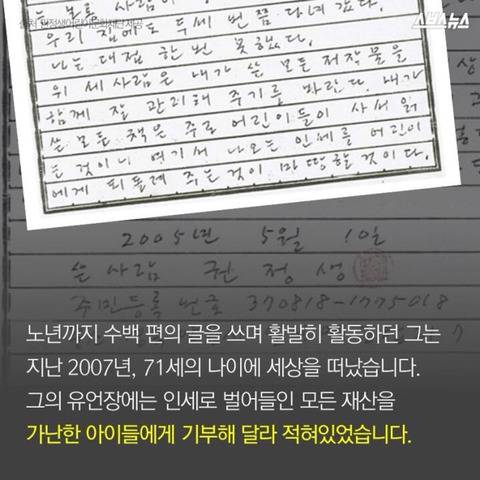 스브스뉴스
권정생어린이문화재단 제공
사람이
우리 집에도 두세 번쯤 다녀갔다.
나는 대접 한 번 못했다.
위 세 사람은 내가 쓴 모든 저작물을
함께 잘 관리해 주기를 바란다. 내가
쓴 모든 책은 주로 어린이들이 사서 읽
는 것이니 여기서 나오는 인세를 어린이
에게 되돌려 주는 것이 마땅할 것이다.
2005년 5월 10일
쓴 사람 권정생
주민등록번호 370818-1775018
노년까지 수백 편의 글을 쓰며 활발히 활동하던 그는
지난 2007년, 71세의 나이에 세상을 떠났습니다.
그의 유언장에는 인세로 벌어들인 모든 재산을
가난한 아이들에게 기부해 달라 적혀있었습니다.